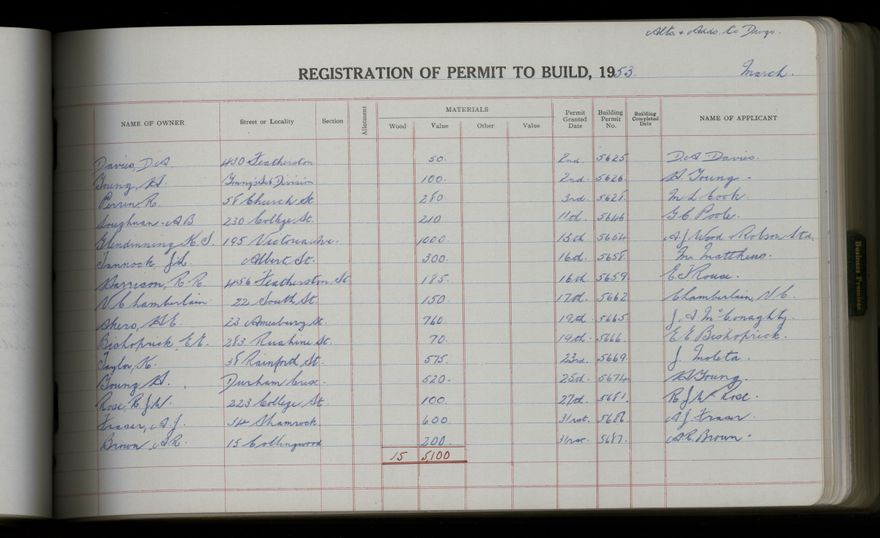 Alts. & Adds. to Dwgs.
REGISTRATION OF PERMIT TO BUILD, 1953. March.
NAME OF OWNER Street or Locality Section Allotment MATERIALS Wood Value Other Value Permit Granted Date Building Permit No. Building Completed Date NAME OF APPLICANT
Davies, D.A. 430 Featherston 50. 2nd. 5625 D.A. Davies.
Young, H. Young's Sub Division 100. 2nd. 5626 H. Young.
Perrin R. 58 Church St. 280 3rd. 5628 M. L. Cook.
A B 230 College St. 210 11th. 5646 G.C. Poole.
Glendinning K.S. 195 Victoria Ave. 1000 13th. 5654 A.J. Wood & Robson Ltd.
Tannock, J.L. Albert St. 300. 16th. 5658 Mr. Matthews.
Harrison, R.R. 456 Featherston St 185. 16th. 5659 E.J. Rouse.
N.C. Chamberlain 22 South St. 150. 17th. 5662 Chamberlain, N.C.
Akers, H.E. 23 Amesbury St. 760 19th. 5665 J. A. McConaghty.
Bishoprick, E.E. 283 Ruahine St. 70. 19th. 5666. E.E. Bishoprick.
Taylor, K. 38 Rainforth St. 575. 23rd. 5669. J. Moleta.
Young H. Durham Cresc. 520. 25th. 5674. H. Young.
Rose R.J.W. 223 College St. 100. 27th. 5681. R.J.W. Rose.
Fraser, A.J. 34 Shamrock 600 31st. 5686 A.J. Fraser.
Brown A.R. 15 Collingwood 200. 31st. 5687. A.R. Brown.
15 5,100
Business Premises